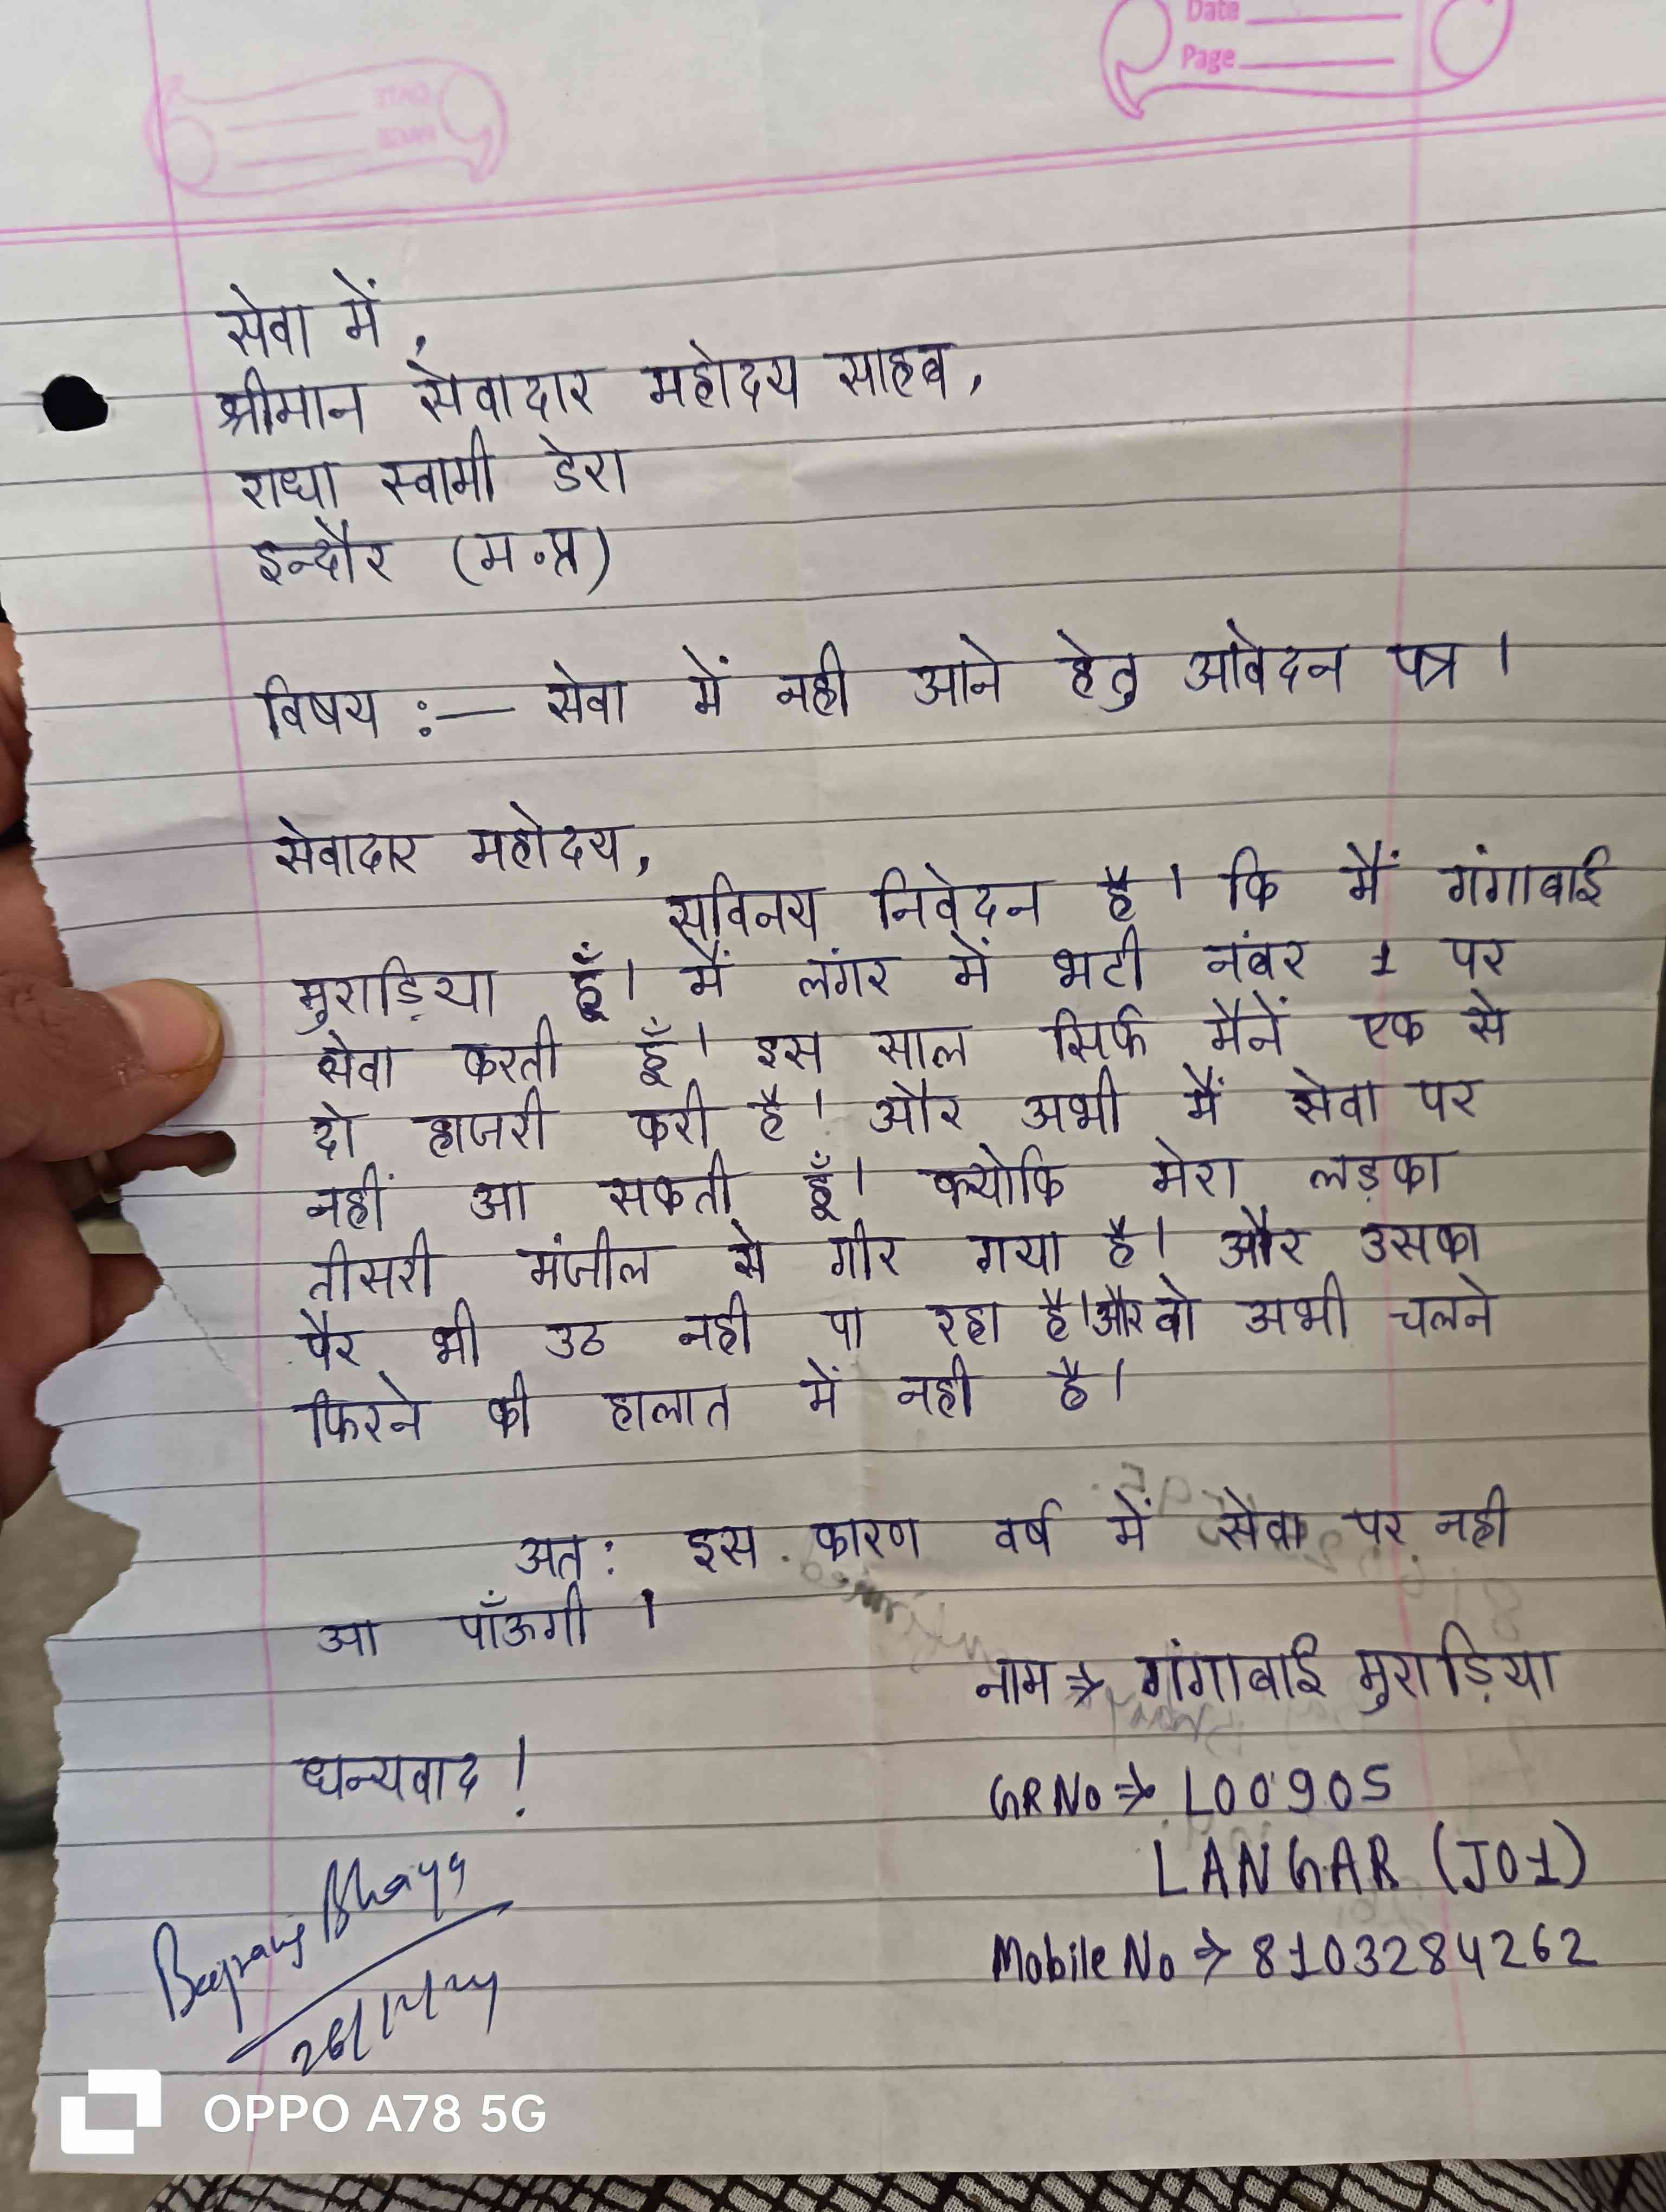 Date
Page
सेवा में,
श्रीमान सेवादार महोदय साहब,
राधा स्वामी डेरा
इन्दौर (म.प्र)
विषय :— सेवा में नही आने हेतु आवेदन पत्र ।
सेवादार महोदय,
सविनय निवेदन है । कि मैं गंगाबाई
मुराड़िया हूँ। मैं लंगर में भटी नंबर 1 पर
सेवा करती हूँ । इस साल सिर्फ मैनें एक से
दो हाजरी करी है । और अभी मैं सेवा पर
नहीं आ सकती हूँ । क्योकि मेरा लड़का
तीसरी मंजील से गीर गया है । और उसका
पैर भी उठ नही पा रहा है।और वो अभी चलने
फिरने की हालात में नही है ।
अत: इस कारण वर्ष में सेवा पर नही
आ पाँऊगी ।
नाम ⇒ गंगाबाई मुराड़िया
धन्यवाद !
GR No ⇒ L00905
LANGAR (J01)
Mobile No ⇒ 8103284262
26/12/24
OPPO A78 5G